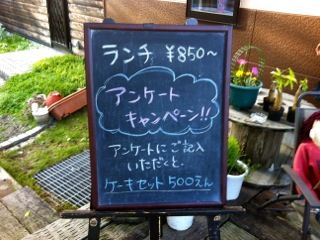 ランチ ¥850～
アンケート
キャンペーン!!
アンケートにご記入
いただくと、
ケーキセット 500えん